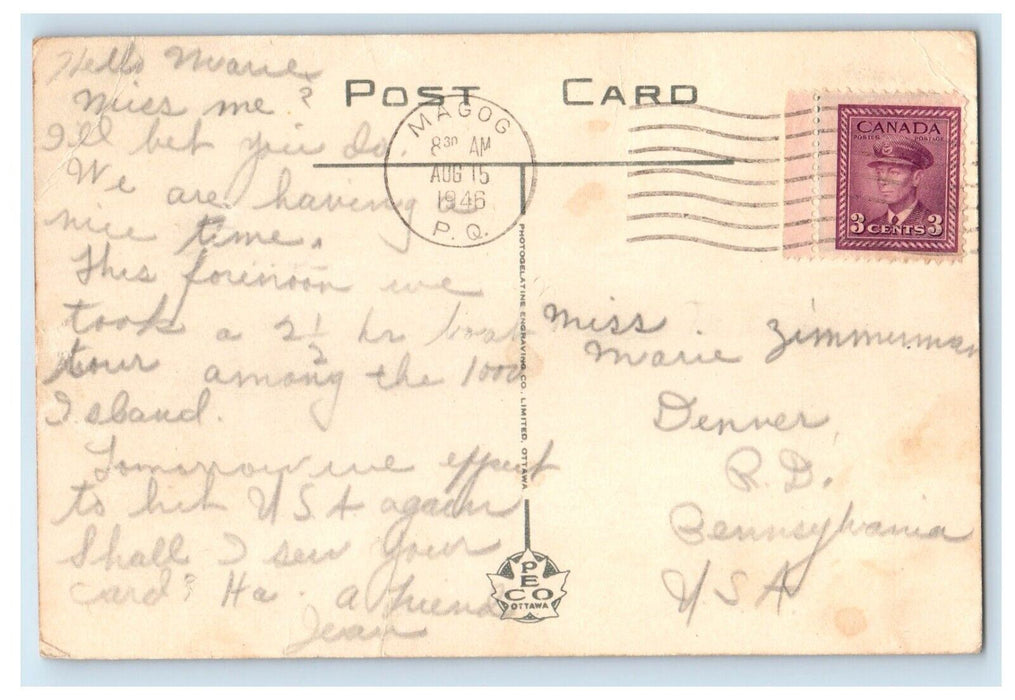 Hello Marie
Miss me?
I'll bet you do.
We are having a
nice time.
This forenoon we
took a 2 1/2 hr boat
tour among the 1000
Island.
Tomorrow we expect
to hit USA again
Shall I sen your
card? Ha. a friend
Jean
POST CARD
MAGOG
8 30 AM
AUG 15
1946
P.Q.
CANADA
POSTES POSTAGE
3 CENTS 3
PHOTOGELATINE ENGRAVING CO. LIMITED, OTTAWA
Miss. Zimmerman
Marie
Denver,
R.D.
Pennsylvania
USA
PECO
OTTAWA